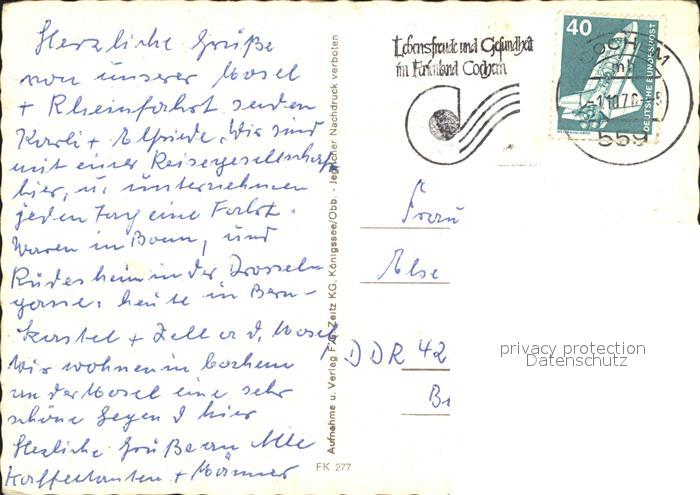 Herzliche Grüße
von unserer Mosel
+ Rheinfahrt senden
Karli + Elfriede. Wir sind
mit einer Reisegesellschaft
hier, u. unternehmen
jeden Tag eine Fahrt.
Waren in Bonn, und
Rüdesheim in der Drossel
gasse. heute in Bern-
kastel + Zell a. d. Mosel.
Wir wohnen in Cochem
an der Mosel eine sehr
schöne Gegend hier
Herzliche Grüße an Alle
Kaffeetanten + Männer
Aufnahme u. Verlag F. G. Zeitz KG, Königssee/Obb. - Jeglicher Nachdruck verboten
FK 277
Lebensfreude und Gesundheit
im Ferienland Cochem
40
DEUTSCHE BUNDESPOST
COCHEM 1
mb
559
Frau
Else
DDR 42
privacy protection
Datenschutz